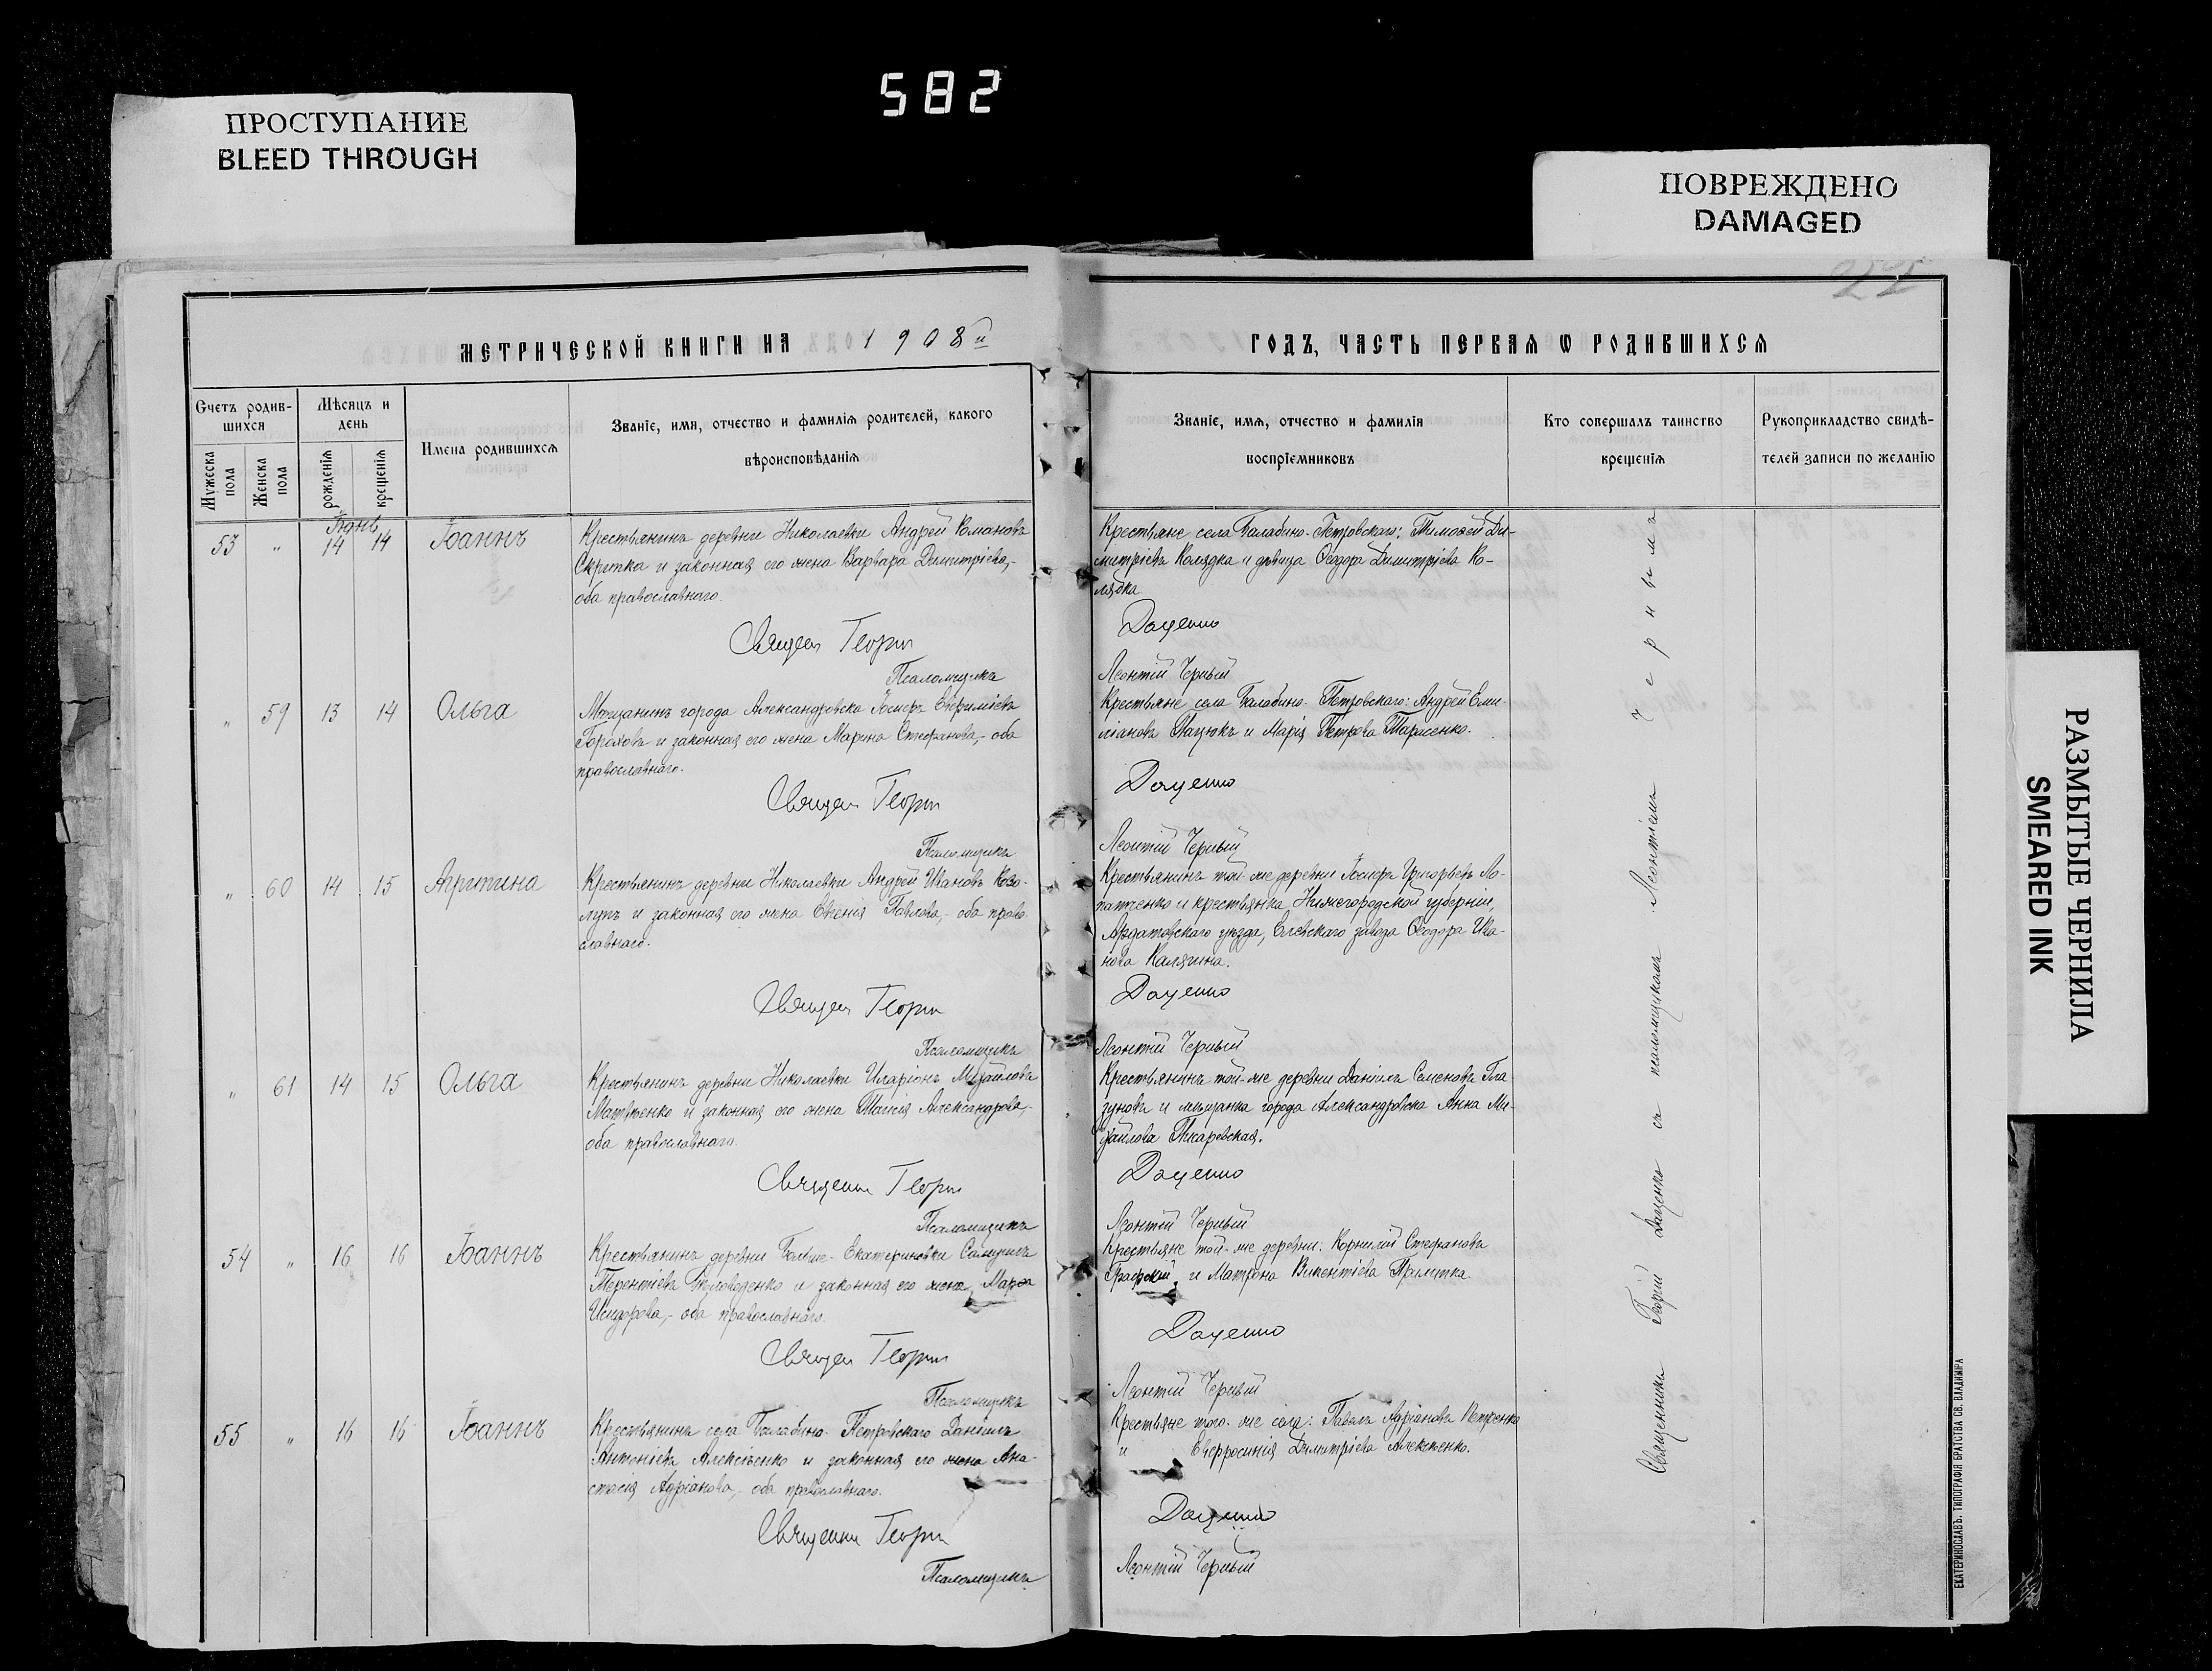 582
ПРОСТУПАНИЕ
BLEED THROUGH
ПОВРЕЖДЕНО
DAMAGED
РАЗМЫТЫЕ ЧЕРНИЛА
SMEARED INK
МЕТРИЧЕСКОЙ КНИГИ НА 1908й
Счетъ родив-
шихся
Мужеска
пола
Женска
пола
Мѣсяцъ и
день
рожденія
крещенія
Имена родившихся
Званіе, имя, отчество и фамилія родителей, какого
вѣроисповѣданія
53 " 14 14 Іоаннъ
Крестьянинъ деревни Николаевки Андрей Романовъ
Скрипка и законная его жена Варвара Димитріева,-
оба православнаго.
Священ Георги
Псаломщикъ
" 59 13 14 Ольга
Мѣщанинъ города Александровска Іосифъ Евфиміевъ
Гороховъ и законная его жена Марина Стефанова,- оба
православнаго.
Священ Георги
Псаломщикъ
" 60 14 15 Агрипина
Крестьянинъ деревни Николаевки Андрей Ивановъ Козо-
лупъ и законная его жена Евгенія Павлова,- оба право
славнаго.
Священ Георги
Псаломщикъ
" 61 14 15 Ольга
Крестьянинъ деревни Николаевки Иларіонъ Михайловъ
Матвѣенко и законная его жена Таисія Александрова,-
оба православнаго.
Священни Георги
Псаломщикъ
54 " 16 16 Іоаннъ
Крестьянинъ деревни Больше-Екатериновки Самуилъ
Терентіевъ и законная его жена Марѳа
Исидорова,- оба православнаго.
Священ Георги
Псаломщикъ
55 " 16 16 Іоаннъ
Крестьянинъ села Балабино-Петровскаго Даніилъ
Антоніевъ Алексѣенко и законная его жена Ана-
стасія Адріанова,- оба православнаго.
Священни Георги
Псаломщикъ
ГОДЪ, ЧАСТЬ ПЕРВАЯ Ѡ РОДИВШИХСЯ
Званіе, имя, отчество и фамилія
воспріемниковъ
Кто совершалъ таинство
крещенія
Рукоприкладство свидѣ-
телей записи по желанію
Крестьяне села Балабино-Петровскаго: Тимоѳей Ди-
митріевъ Колядка и дѣвица Ѳеодора Димитріева Ко-
лядка
Даценко
Леонтій Черный
Крестьяне села Балабино-Петровскаго: Андрей Еми-
ліановъ Пацюкъ и Марія Петрова Тарасенко.
Даценко
Леонтій Черный
Крестьянинъ той-же деревни Іосифъ Григорьевъ Ло-
патченко и крестьянка Нижегородской губерніи,
Ардатовскаго уѣзда, завода Ѳеодора Ива-
нова Калягина.
Даценко
Леонтій Черный
Крестьянинъ той-же деревни Даніилъ Семеновъ Гла-
зуновъ и мѣщанка города Александровска Анна Ми-
хайлова
Даценко
Леонтій Черный
Крестьяне той-же деревни: Корнилій Стефановъ
и Матрона Викентіева
Даценко
Леонтій Черный
Крестьяне того-же села: Павелъ Адріановъ Петренко
и Евфросинія Димитріева Алексѣенко.
Даценко
Леонтій Черный
Священникъ Георгій Даценко съ псаломщикомъ Леонтіемъ Чернымъ
ЕКАТЕРИНОСЛАВЪ. ТИПОГРАФІЯ БРАТСТВА СВ. ВЛАДИМІРА